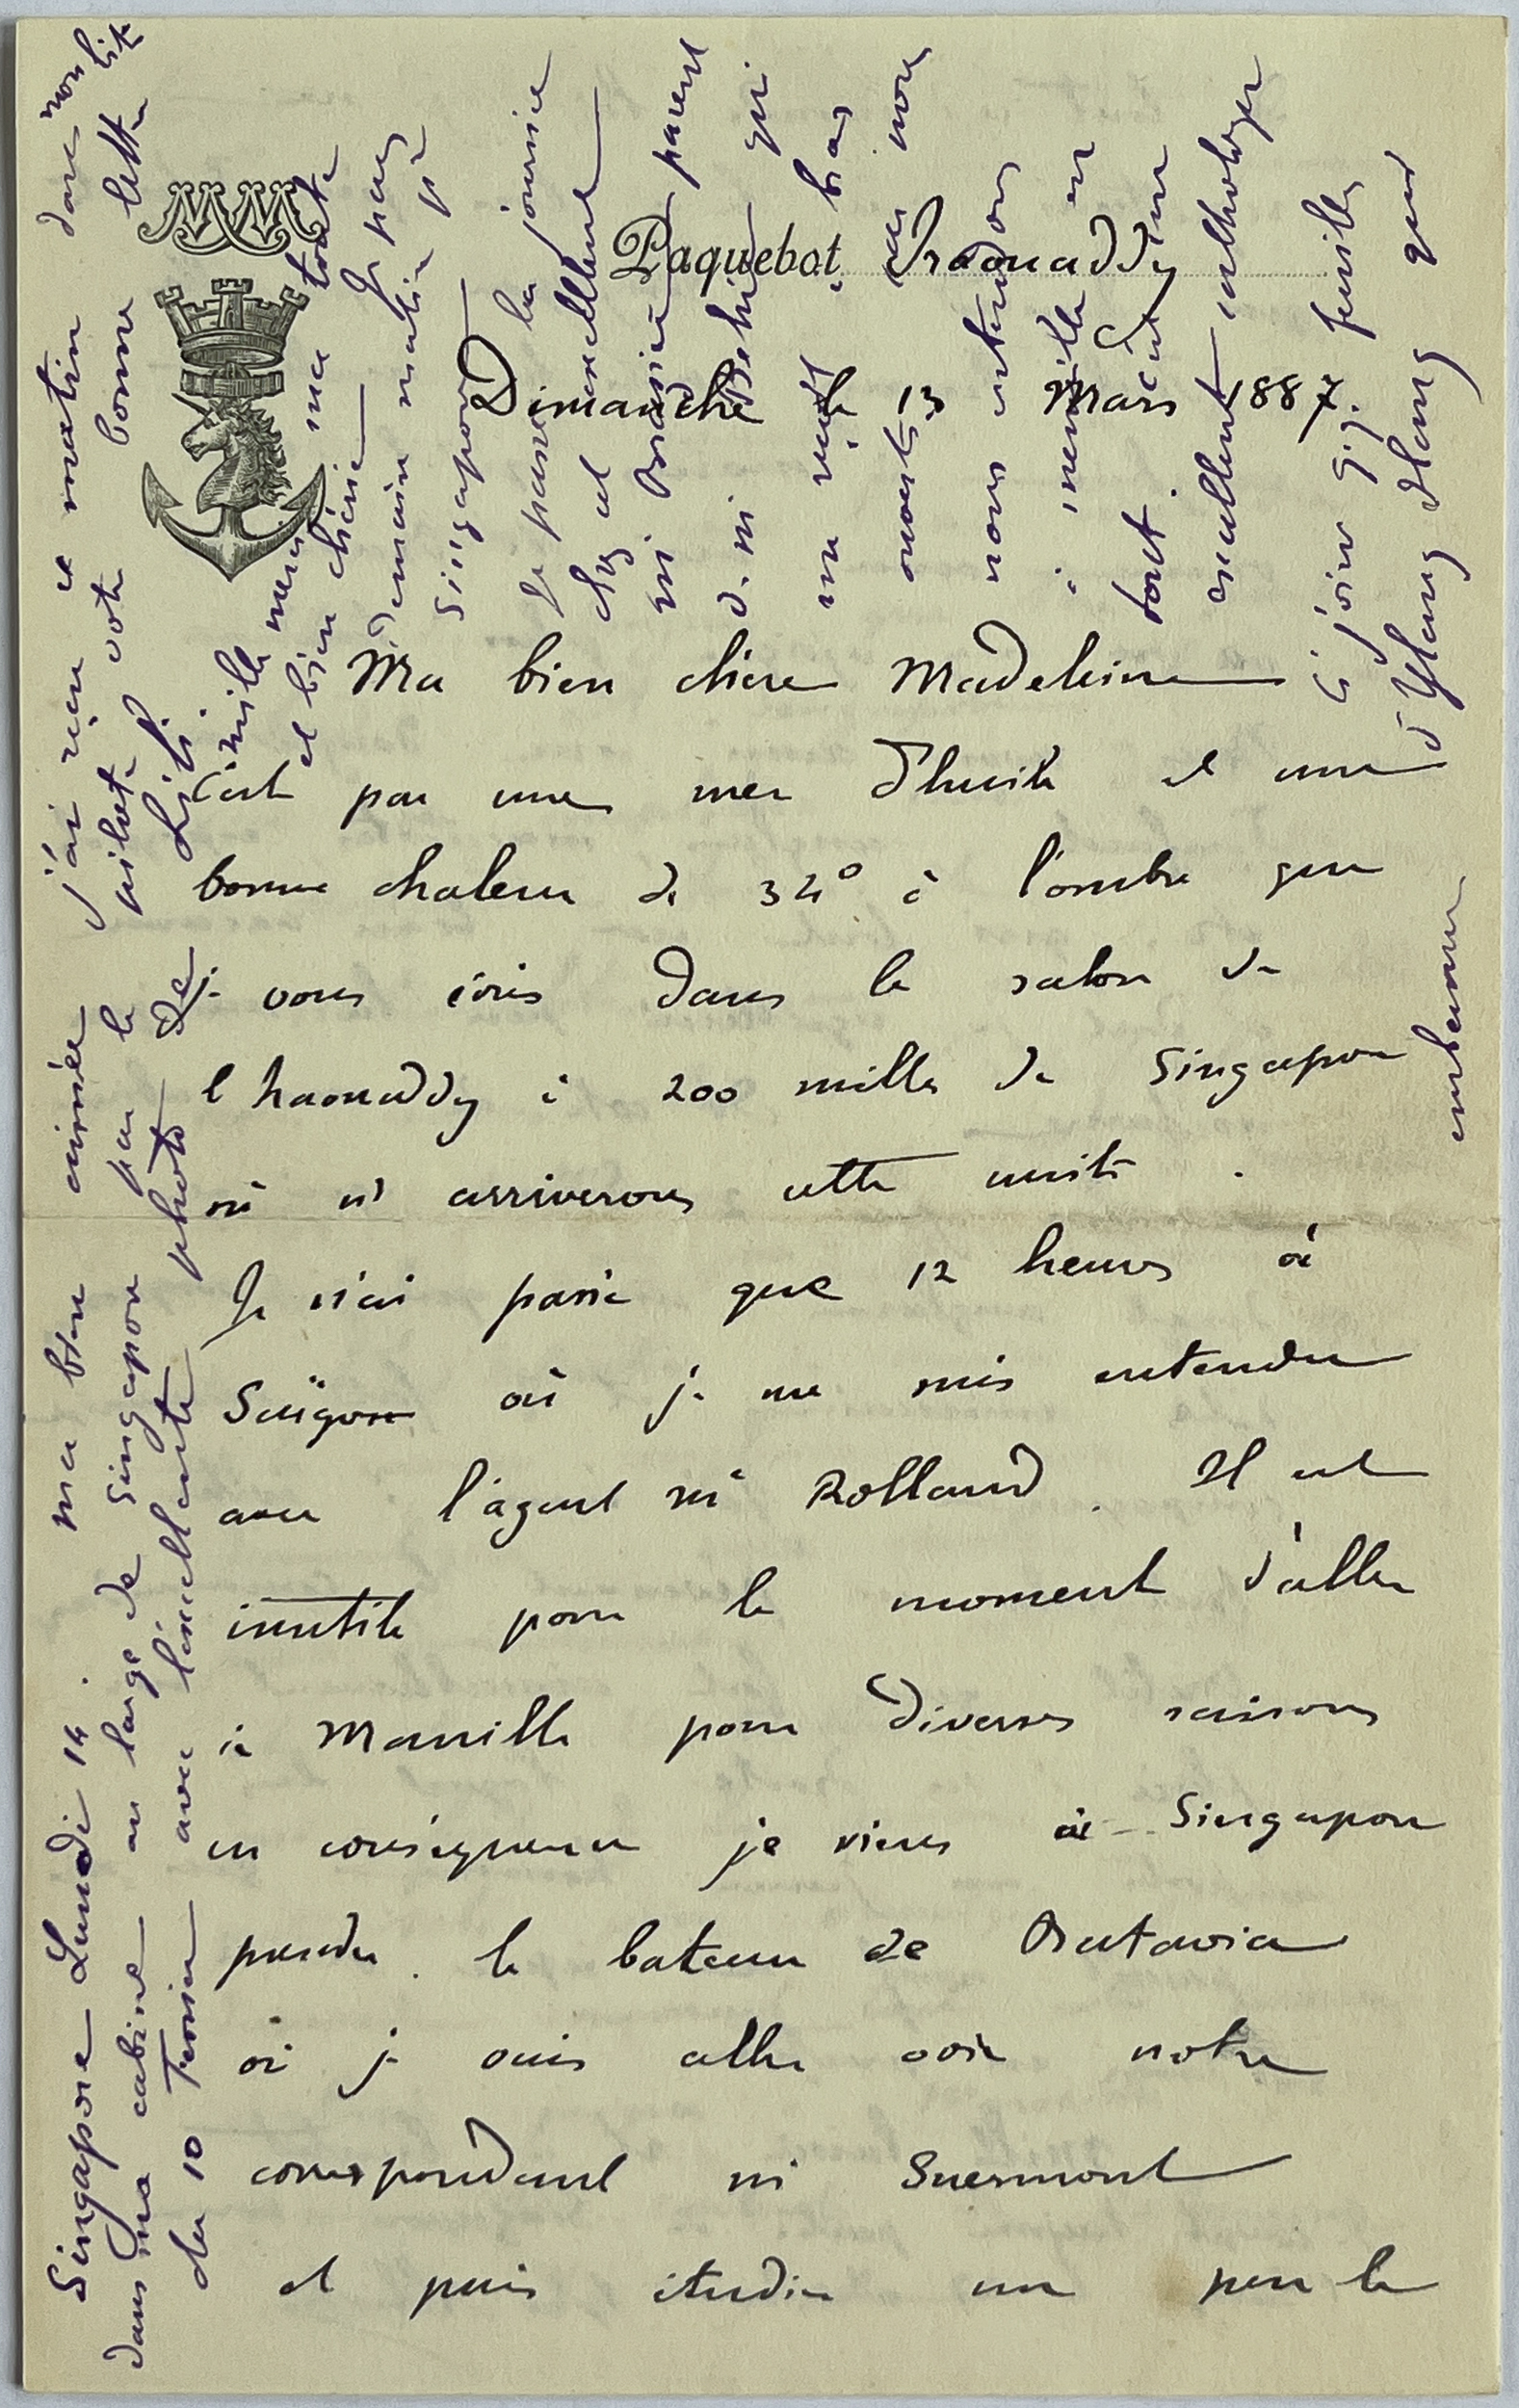 MM
Paquebot Iraouaddy
Dimanche le 13 Mars 1887.
Ma bien chère Madeleine
C'est par une mer d'huile et une
bonne chaleur de 34° à l'ombre que
je vous écris dans le salon de
l'Iraouaddy à 200 milles de Singapour
où ns arriverons cette nuit.
Je n'ai passé que 12 heures à
Saïgon où je me suis entendu
avec l'agent Mr Rolland. Il est
inutile pour le moment d'aller
à Manille pour diverses raisons
en conséquence je viens à Singapour
prendre le bateau de Batavia
où je vais aller voir notre
correspondant Mr Suermont
et puis étudier un peu le
Singapore Lundi 14. ma bien aimée j'ai reçu ce matin dans mon lit
dans ma cabine au large de Singapour par le pilote votre bonne lettre
du 10 Février avec l'excellente photo de Lili.
mille merci ma toute
et bien chère
Je pars
demain matin
Singapour
Je passe la journée
chez et
Mr Brasier parent
de Mr qui
me reçoit à bras
ouverts
nous entendons
à merveille en
tout. C'est un
excellent
ci joint q.q. feuilles
d'Ylang Ylang qui
embaument